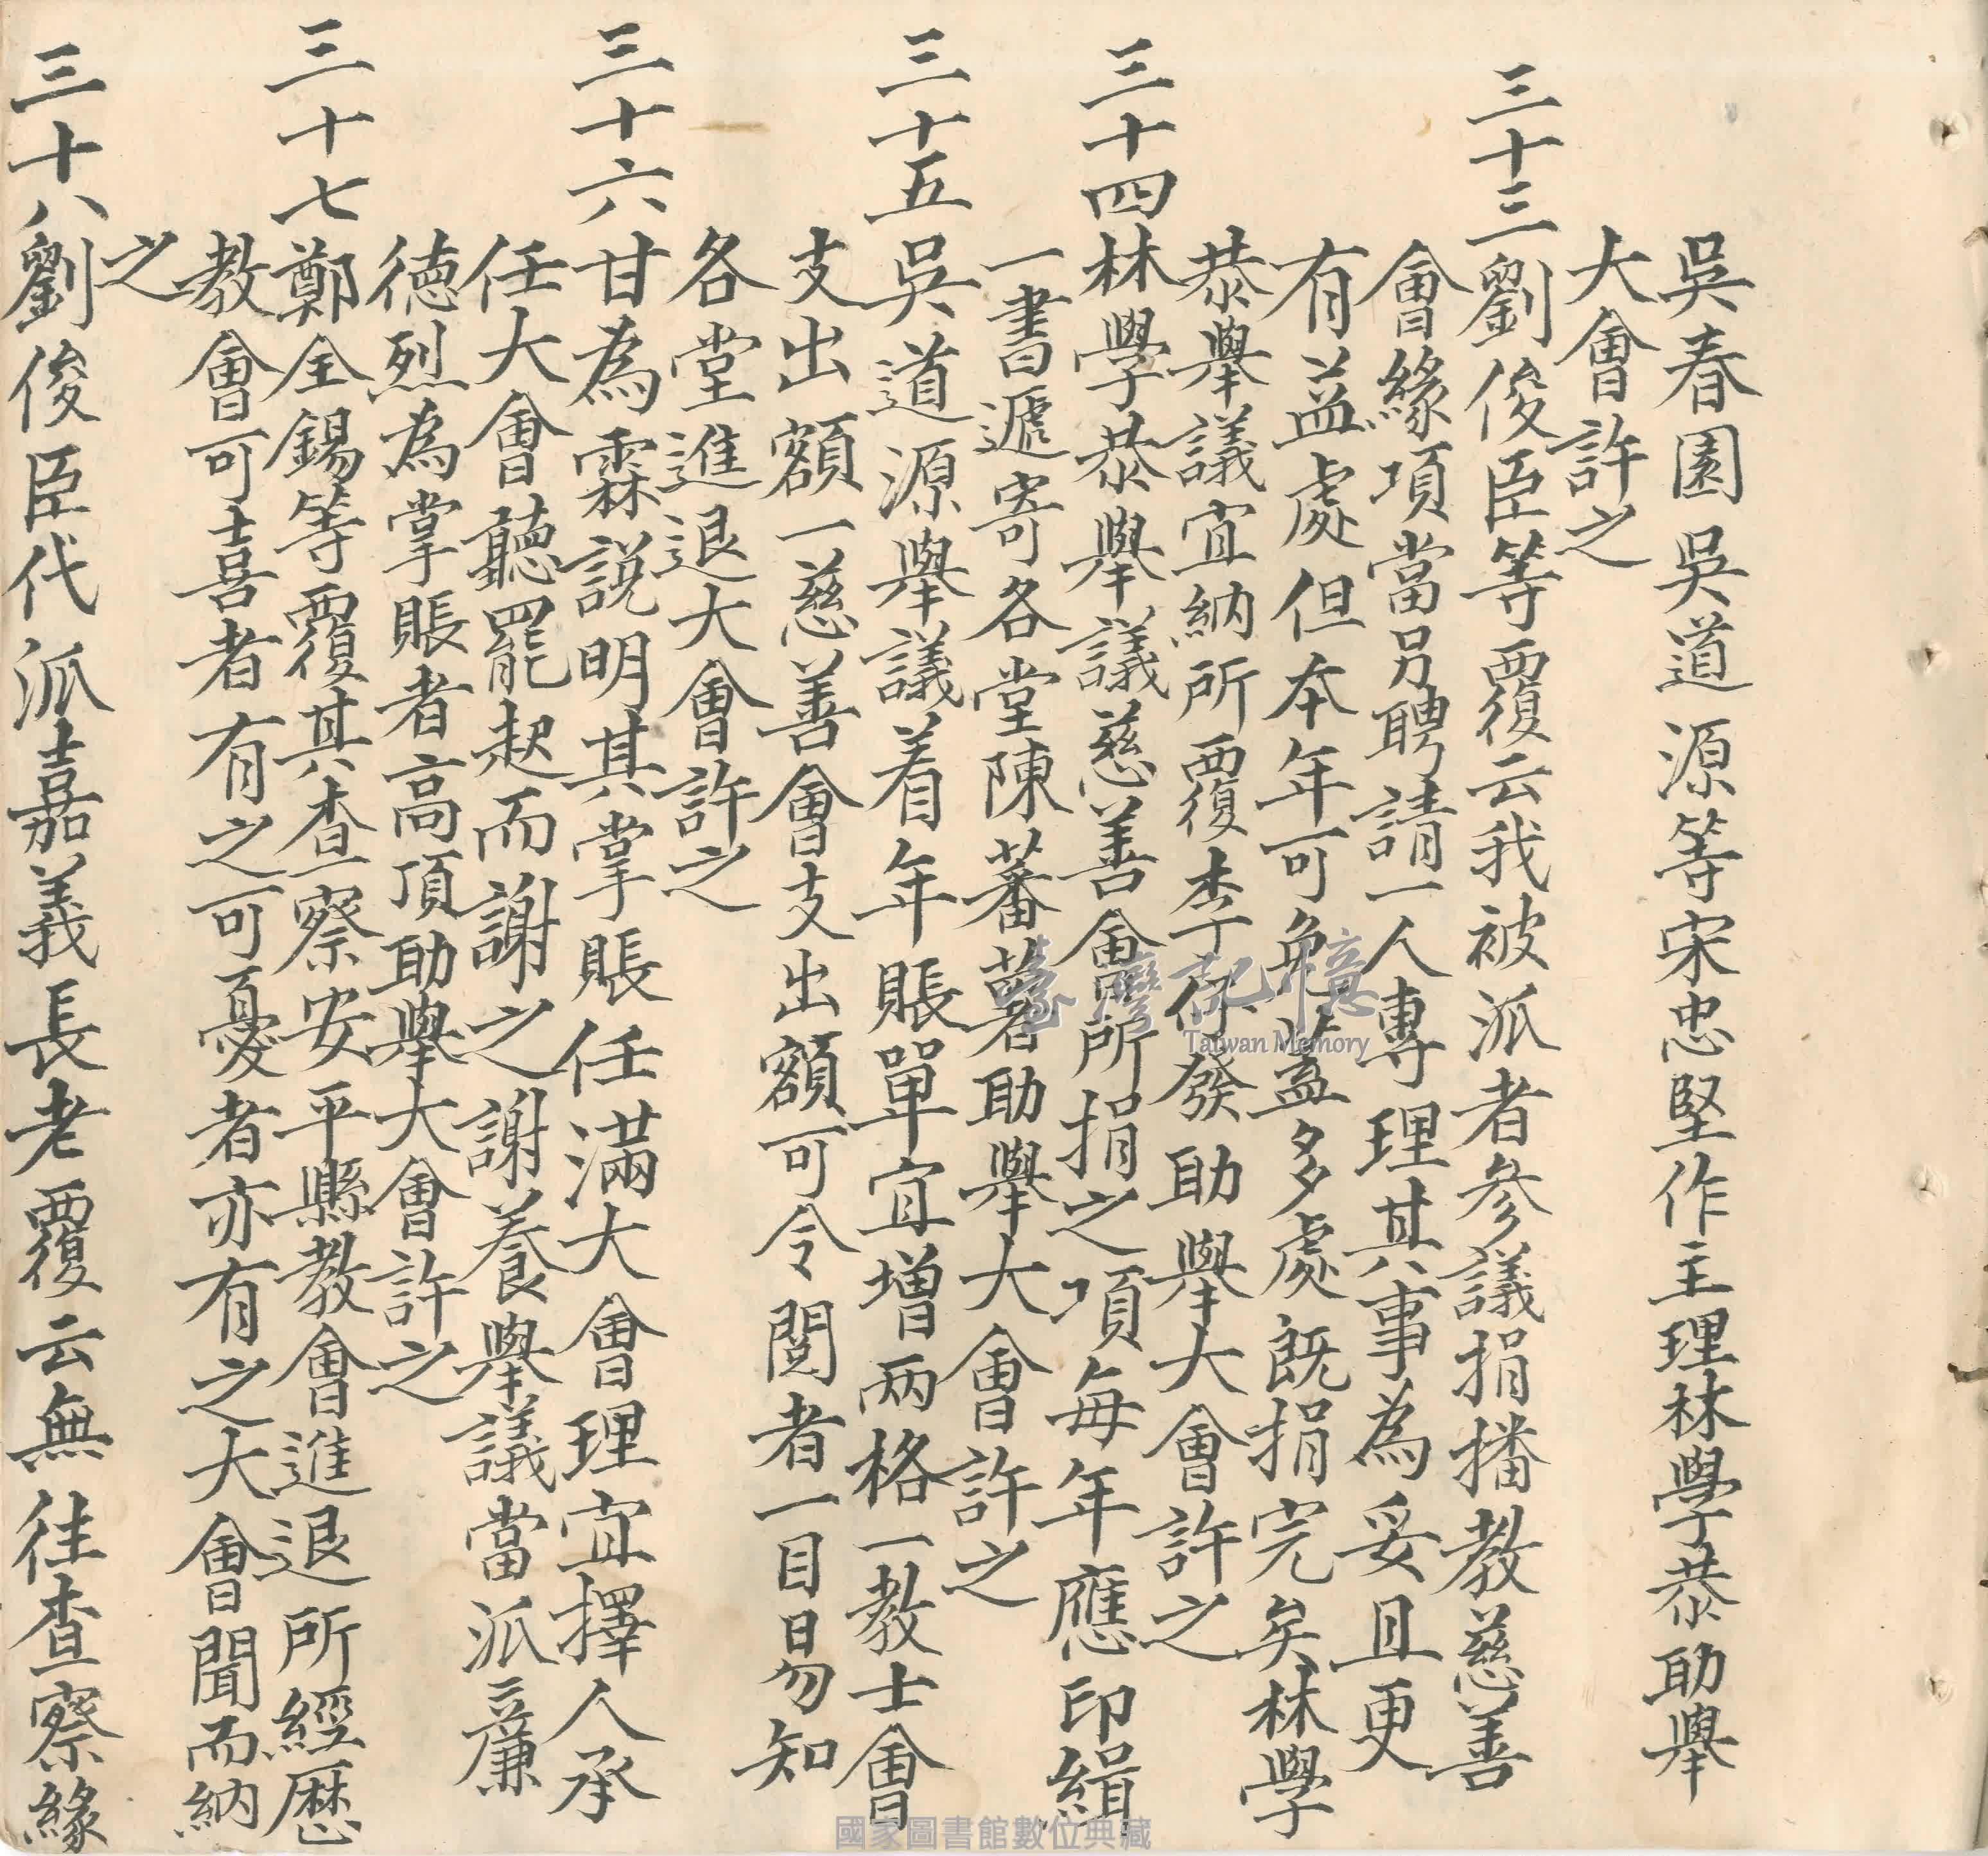 吳春園吳道源等宋忠堅作主理林學恭助舉
大會許之
三十三劉俊臣等覆云我被派者參議捐播教慈善
會緣項當另聘請一人專理其事為妥且更
有益處但本年可免蓋多處既捐完矣林學
恭舉議宜納所覆李 發助舉大會許之
三十四林學恭舉議慈善會所捐之項每年應印緝
一書遞寄各堂陳蕃薯助舉大會許之
三十五吳道源舉議着年賬單宜增兩格一教士會
支出額一慈善會支出額可令閱者一目易知
各堂進退大會許之
三十六甘為霖説明其掌賬任滿大會理宜擇人承
任大會聽罷起而謝之謝養舉議當派廉
徳烈為掌賬者高頂助舉大會許之
三十七鄭全錫等覆其查察安平縣教會進退所經歴
教會可喜者有之可憂者亦有之大會聞而納
之
三十八劉俊臣代派嘉義長老覆云無往查察緣
臺灣記憶
Taiwan Memory
國家圖書館數位典藏